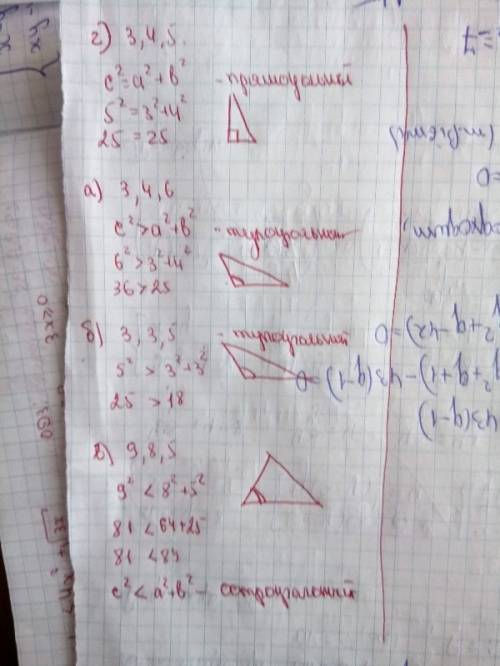 г) 3, 4, 5.
c² = a² + b² - прямоугольный
5² = 3² + 4²
25 = 25
а) 3, 4, 6
c² > a² + b² - тупоугольный
6² > 3² + 4²
36 > 25
б) 3, 3, 5 - тупоугольный
5² > 3² + 3²
25 > 18
в) 9, 8, 5
9² < 8² + 5²
81 < 64 + 25
81 < 89
c² < a² + b² - остроугольный
= 7
= 0
² + q - 42) = 0
q² + q + 1) - 43(q - 1) = 0
43(q - 1)
3x ≥ 0
ОДЗ: